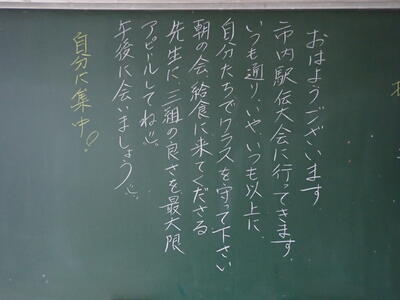 おはようございます
市内駅伝大会に行ってきます。
いつも通り、いや、いつも以上に、
自分たちでクラスを守って下さい
朝の会、給食に来てくださる
先生に、三組の良さを最大限
アピールしてね。
午後に会いましょう。
自分に集中!